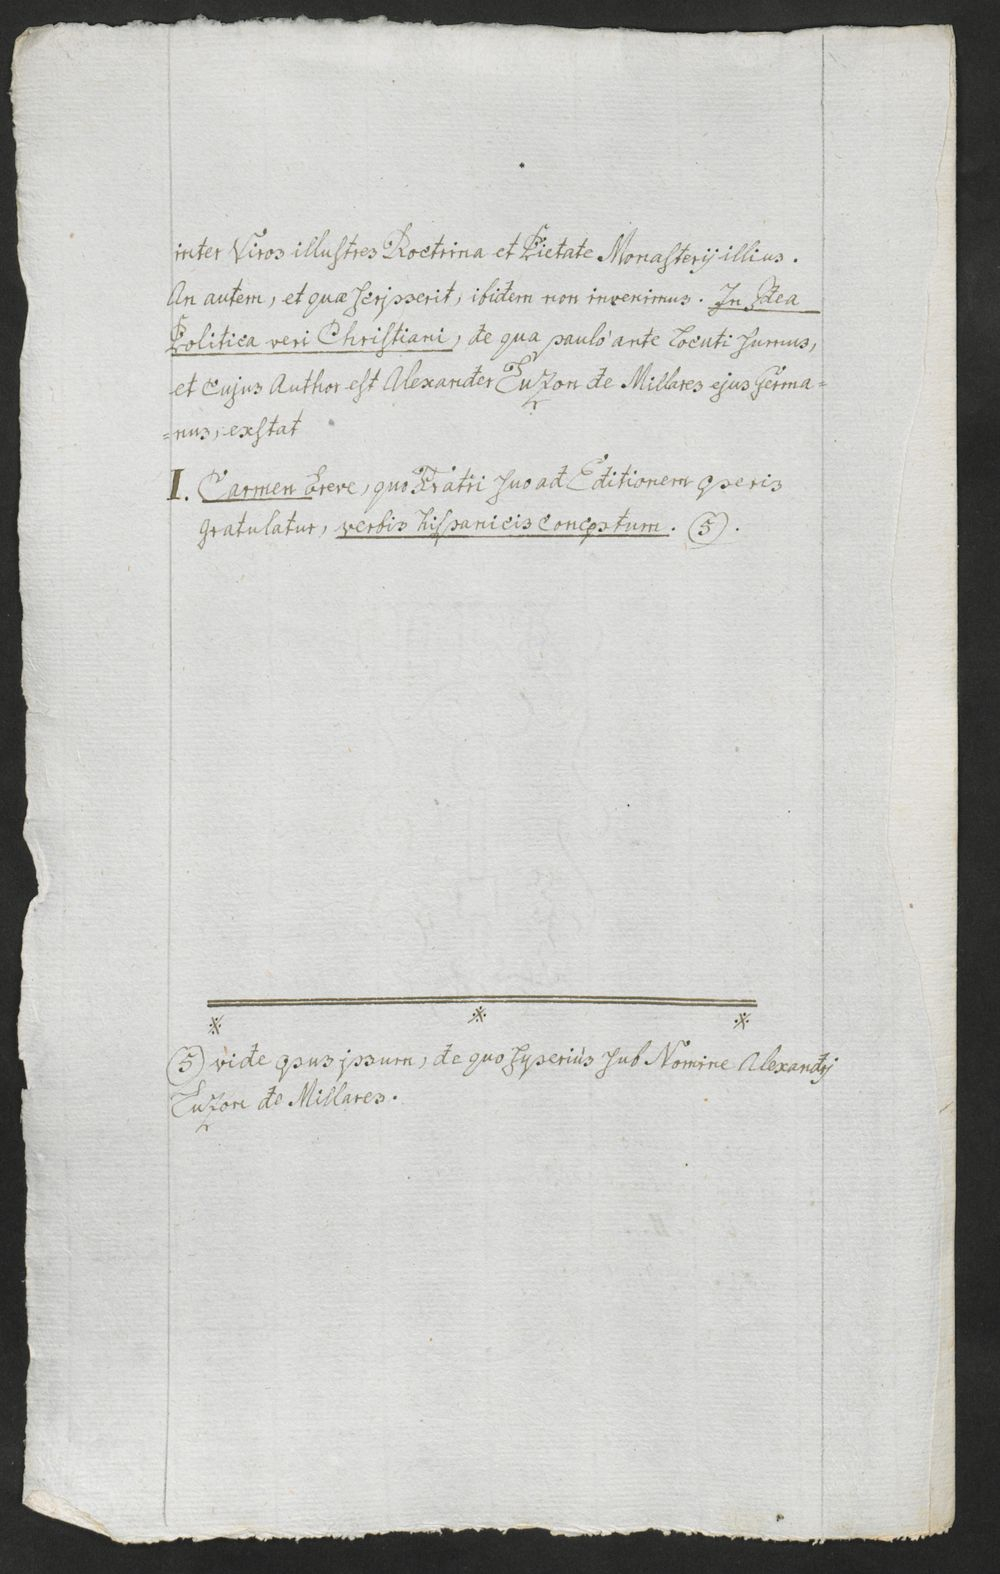 inter Viros illustres Doctrina et Pietate Monasterij illius.
An autem, et quæ scripserit, ibidem non invenimus. In Idea
Politica veri Christiani, de qua pauló ante locuti sumus,
et cujus Author est Alexander Luzon de Millares ejus Germa=
=nus, exstat
I. Carmen breve, quo Fratri suo ad Editionem operis
gratulatur, verbis hispanicis conceptum. (5).
(5) vide opus ipsum, de quo superiùs sub Nomine Alexandri
Luzon de Millares.